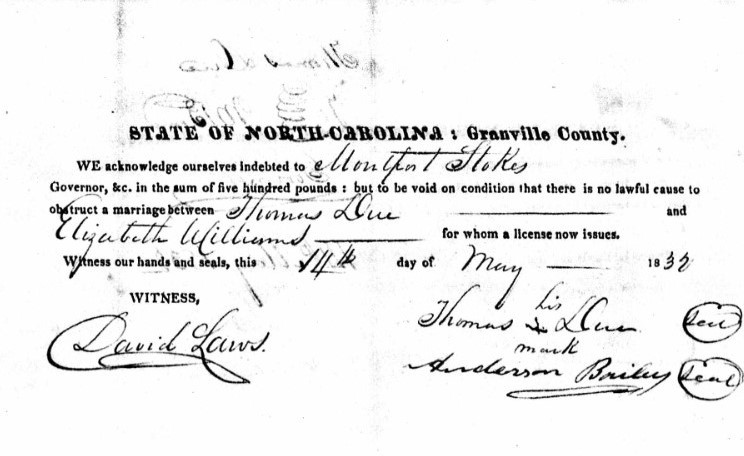 STATE OF NORTH-CAROLINA : Granville County.
WE acknowledge ourselves indebted to Montfort Stokes
Governor, &c. in the sum of five hundred pounds : but to be void on condition that there is no lawful cause to
obstruct a marriage between Thomas Due and
Elizabeth Williams for whom a license now issues.
Witness our hands and seals, this 14th day of May 1832
WITNESS,
his
Thomas X Due seal
mark
David Laws.
Anderson Bailey seal